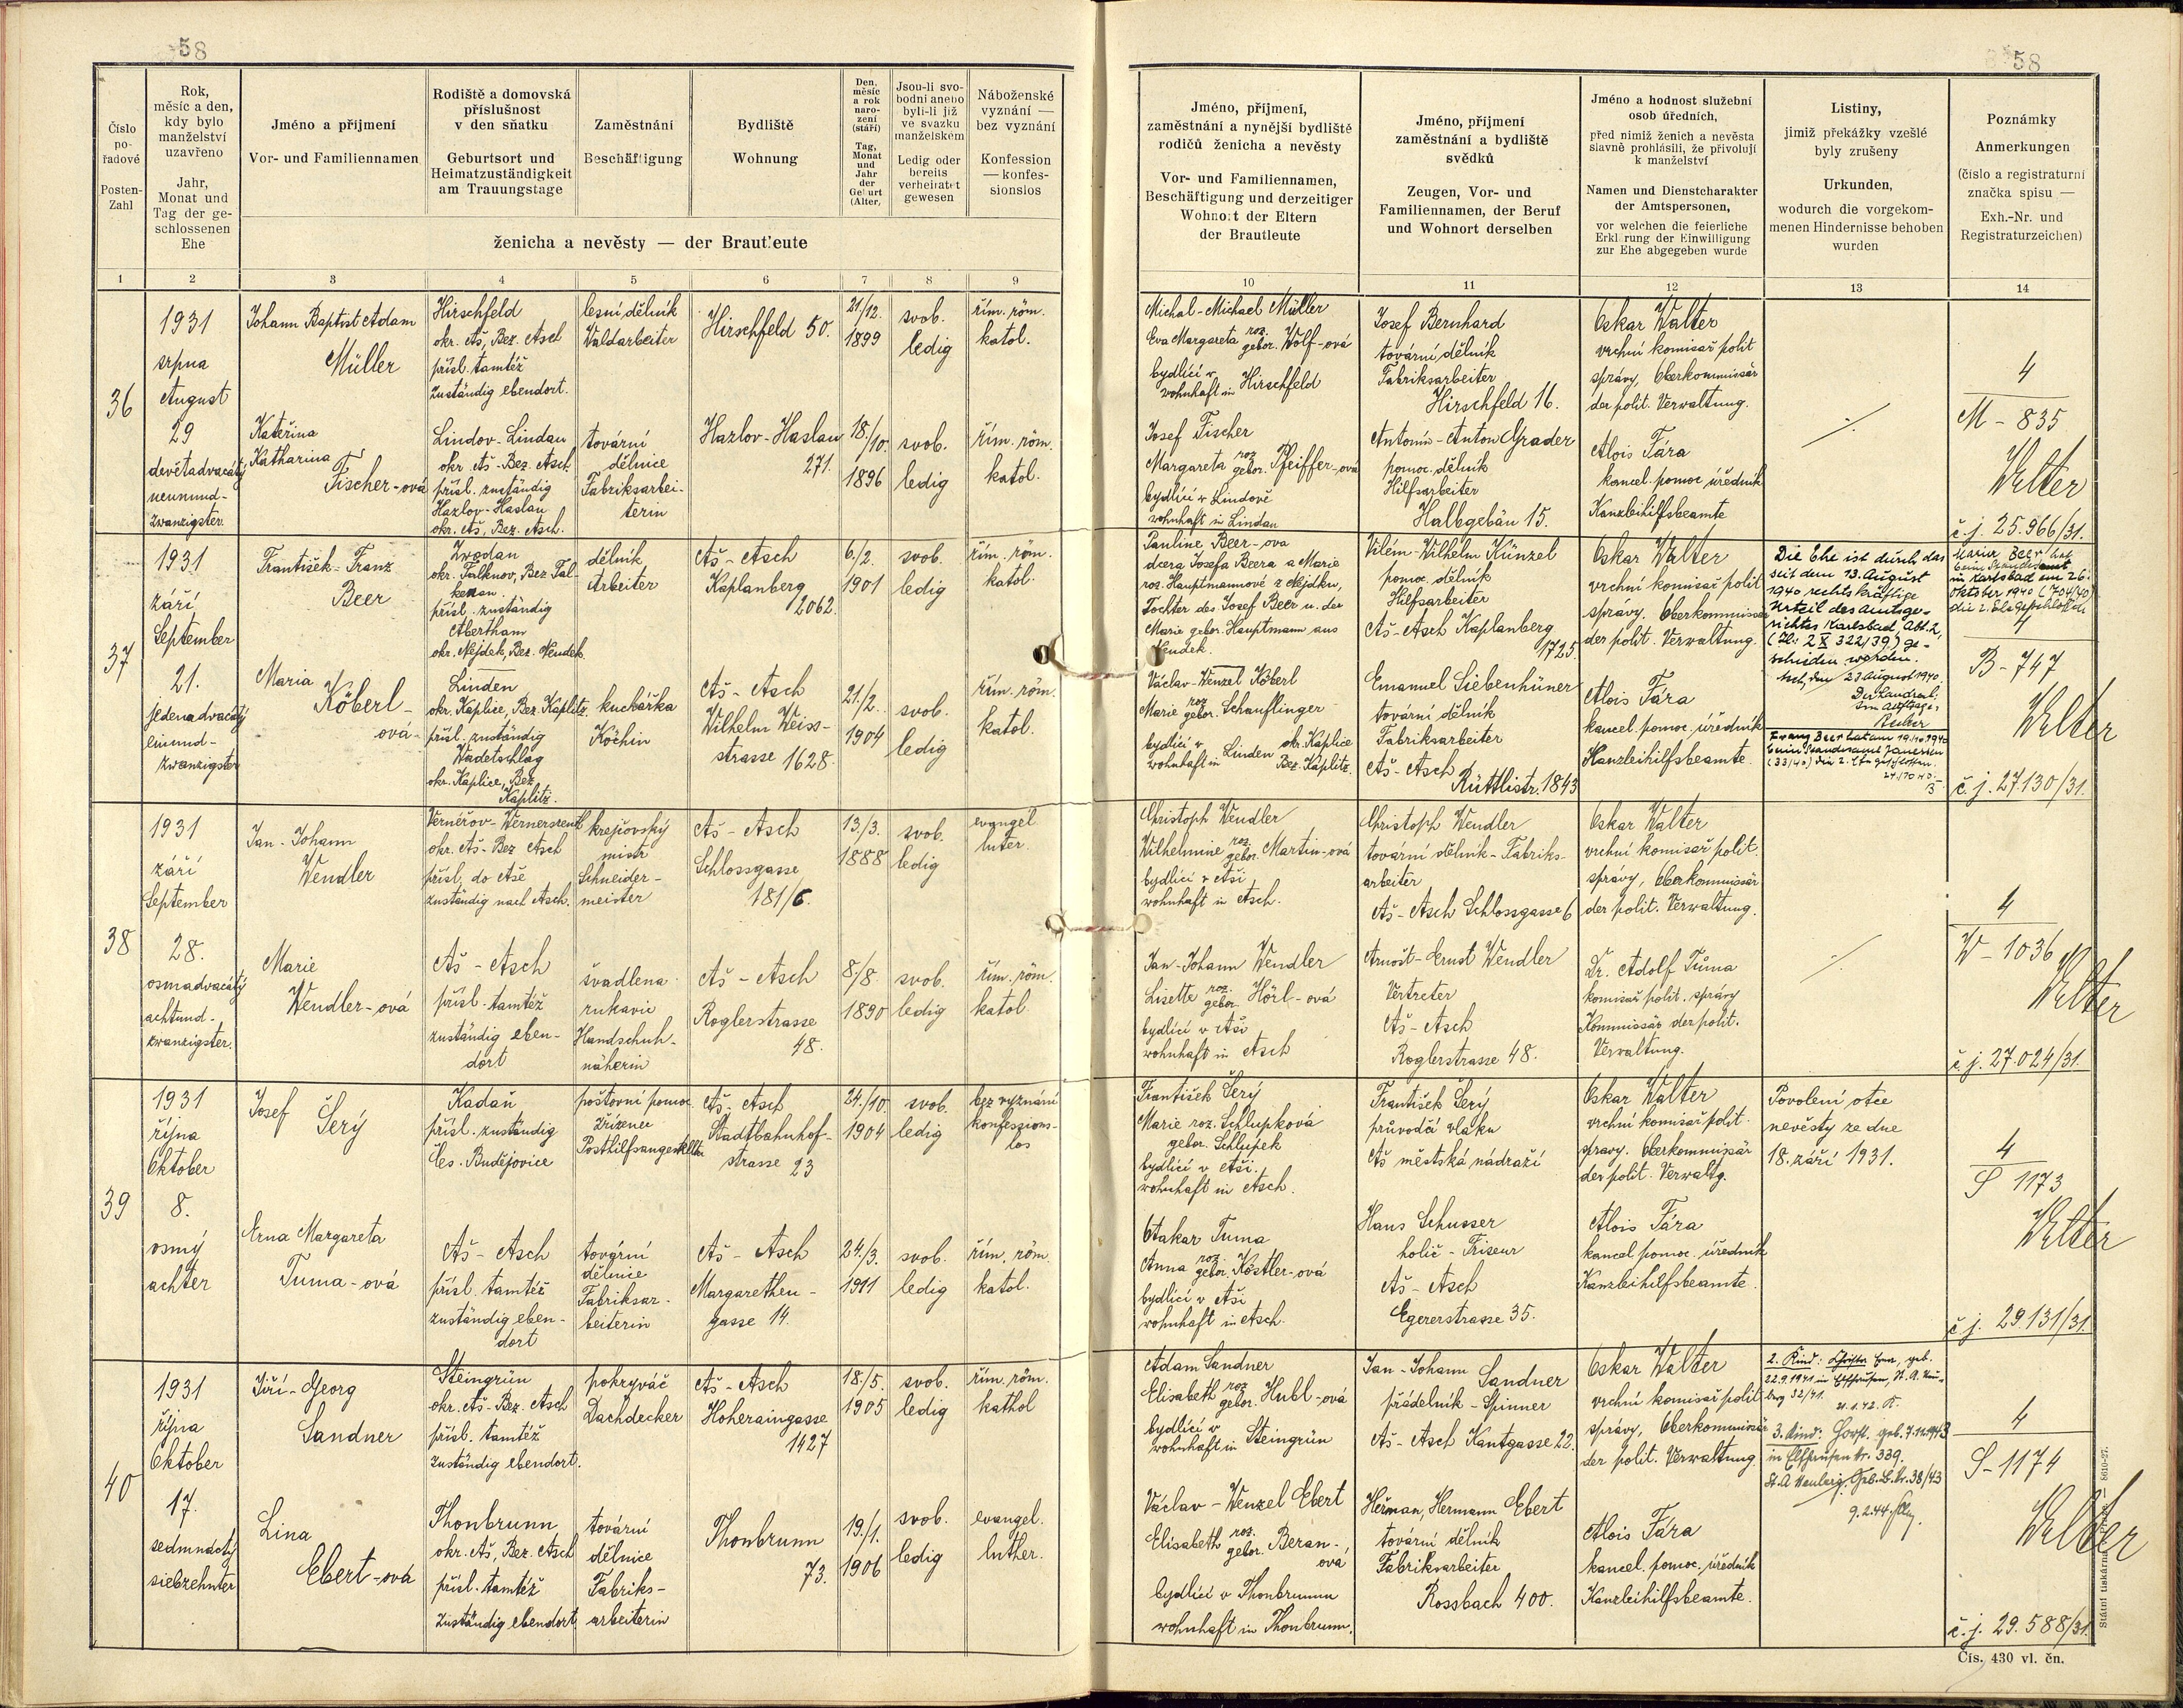 58
Číslo pořadové
Posten-Zahl
Rok, měsíc a den, kdy bylo manželství uzavřeno
Jahr, Monat und Tag der geschlossenen Ehe
Jméno a příjmení
Vor- und Familiennamen
Rodiště a domovská příslušnost v den sňatku
Geburtsort und Heimatzuständigkeit am Trauungstage
Zaměstnání
Beschäftigung
Bydliště
Wohnung
Den, měsíc a rok narození (stáří)
Tag, Monat und Jahr der Geburt (Alter)
Jsou-li svobodni aneuo byli-li již ve svazku manželském
Ledig oder bereits verheiratet gewesen
Náboženské vyznání — bez vyznání
Konfession — konfessionslos
ženicha a nevěsty — der Braut'eute
1 2 3 4 5 6 7 8 9
36
1931
srpna
August
29
devětadvacátý
neunund-
zwanzigster
Johann Baptist Adam
Müller
Hirschfeld
okr. Aš, Bez. Asch
přísl. tamtéž
zuständig ebendort.
lesní dělník
Waldarbeiter
Hirschfeld 50.
21/12.
1899
svob.
ledig
řím. röm.
katol.
Kateřina
Katharina
Fischer-ová
Lindov-Lindau
okr. Aš-Bez. Asch.
přísl. zuständig
Hazlov-Haslau
okr. Aš, Bez. Asch.
tovární
dělnice
Fabriksarbei-
terin
Hazlov-Haslau
271.
18./10.
1896
svob.
ledig
řím. röm.
katol.
37
1931
září
September
21.
jedenadvacátý
einund-
zwanzigster
František-Franz
Beer
Zwodau
okr. Falknov, Bez. Fal-
kenau.
přísl. zuständig
Abertham
okr. Nejdek, Bez. Neudek.
dělník
Arbeiter
Aš-Asch
Kaplanberg
2062.
6./2.
1901
svob.
ledig
řím. röm.
katol.
Maria
Köberl-
ová
Linden
okr. Kaplice, Bez. Kaplitz.
přísl. zuständig
Wadetschlag
okr. Kaplice, Bez.
Kaplitz.
kuchařka
Köchin
Aš-Asch
Wilhelm Weiss-
strasse 1628.
21/2.
1904
svob.
ledig
řím. röm.
katol.
38
1931
září
September
28.
osmadvacátý
achtund-
zwanzigster.
Jan-Johann
Wendler
Vernéřov-Wernersreuth
okr. Aš-Bez Asch
přísl. do Aše
zuständig nach Asch.
krejčovský
mistr
Schneider-
meister
Aš-Asch
Schlossgasse
181/6.
13./3.
1888
svob.
ledig
evangel
luter.
Marie
Wendler-ová
Aš-Asch
přísl. tamtéž
zuständig eben-
dort
švadlena
rukavic
Handschuh-
näherin
Aš-Asch
Roglerstrasse
48.
8/8
1890
svob.
ledig
řím. röm.
katol
39
1931
října
Oktober
8.
osmý
achter
Josef Šerý
Kadaň
přísl. zuständig
Čes. Budějovice
poštovní pomoc.
zřízenec
Posthilfsangestellter
Aš-Asch
Stadtbahnhof-
strasse 23
24./10.
1904
svob.
ledig
bez vyznání
konfessions-
los
Erna Margareta
Tuma-ová
Aš-Asch
přísl. tamtéž
zuständig eben-
dort
tovární
dělnice
Fabriksar-
beiterin
Aš-Asch
Margarethen-
gasse 14.
24./3.
1911
svob.
ledig
řím. röm.
katol.
40
1931
října
Oktober
17.
sedmnáctý
siebzehnter
Jiří-Georg
Sandner
Steingrün
okr. Aš-Bez. Asch
přísl. tamtéž
zuständig ebendort.
pokryvač
Dachdecker
Aš-Asch
Hoheraingasse
1427
18./5.
1905
svob.
ledig
řím. röm.
kathol
Lina
Ebert-ová
Thonbrunn
okr. Aš, Bez. Asch
přísl. tamtéž
zuständig ebendort
tovární
dělnice
Fabriks-
arbeiterin
Thonbrunn
73.
19./1.
1906
svob.
ledig
evangel.
luther.
58
Jméno, příjmení, zaměstnání a nynější bydliště rodičů ženicha a nevěsty
Vor- und Familiennamen, Beschäftigung und derzeitiger Wohnort der Eltern der Brautleute
Jméno, příjmení zaměstnání a bydliště svědků
Zeugen, Vor- und Familiennamen, der Beruf und Wohnort derselben
Jméno a hodnost služební osob úředních,
před nimiž ženich a nevěsta slavně prohlásili, že přivolují k manželství
Namen und Dienstcharakter der Amtspersonen,
vor welchen die feierliche Erklärung der Einwilligung zur Ehe abgegeben wurde
Listiny,
jimiž překážky vzešlé byly zrušeny
Urkunden,
wodurch die vorgekommenen Hindernisse behoben wurden
Poznámky
Anmerkungen
(číslo a registraturní značka spisu —
Exh.-Nr. und Registraturzeichen)
10 11 12 13 14
Michal-Michael Müller
Eva Margareta roz. gebor. Wolf-ová
bydlící v
wohnhaft in Hirschfeld
Josef Bernhard
tovární dělník
Fabriksarbeiter
Hirschfeld 16.
Oskar Walter
vrchní komisař polit
správy, Oberkommissär
der polit. Verwaltung.
Josef Fischer
Margareta roz gebor. Pfeiffer-ová
bydlící v Lindově
wohnhaft in Lindau
Antonín-Anton Grader
pomoc. dělník
Hilfsarbeiter
Halbgebäu 15.
Alois Fára
kancel. pomoc úředník
Kanzleihilfsbeamte
4
M-835
Walter
č.j. 25.966/31.
Pauline Beer-ova
dcera Josefa Beera a Marie
roz. Hauptmannové z Nejdku,
Tochter des Josef Beer u. der
Marie gebor. Hauptmann aus
Neudek.
Vilém-Wilhelm Künzel
pomoc. dělník
Hilfsarbeiter
Aš-Asch Kaplanberg
1725.
Oskar Walter
vrchní komisař polit
spravy. Oberkommissär
der polit. Verwaltung.
Die Ehe ist durch das
seit dem 13. August
1940 rechtskräftige
Urteil des Amtsge-
richtes Karlsbad Abt. 2,
(Zl: 2 R 322/39) ge-
schieden worden.
Asch, den 23 August 1940.
Der Landrat:
Im Auftrage:
Maria Beer hat
beim Standesamt
in Karlsbad am 26.
Oktober 1940 (704/40)
die 2. Ehe geschlossen.
4
B-747
Walter
č.j. 27.130/31.
Václav-Wenzel Köberl
Marie roz gebor. Schauflinger
bydlící v okr. Kaplice
wohnhaft in Linden Bez. Kaplitz.
Emanuel Siebenhüner
tovární dělník
Fabriksarbeiter
Aš-Asch
Rüttlistr. 1843
Alois Fára
kancel. pomoc. úředník
Kanzleihilfsbeamte.
Franz Beer hat am 19.10.1940
beim Standesamt
(33/40) die 2. Ehe geschlossen.
Christoph Wendler
Wilhelmine roz. gebor. Martin-ová
bydlící v Aši
wohnhaft in Asch.
Christoph Wendler
tovární dělník-Fabriks-
arbeiter
Aš-Asch Schlossgasse 6
Oskar Walter
vrchní komisař polit.
správy, Oberkommissär
der polit. Verwaltung.
Jan-Johann Wendler
Lisette roz. gebor. Hörl-ová
bydlící v Aši
wohnhaft in Asch
Arnošt-Ernst Wendler
Vertreter
Aš-Asch
Roglerstrasse 48.
Dr. Adolf Tůma
komisař polit. správy
Kommissär der polit.
Verwaltung.
4
W-1036
Walter
č.j. 27.024/31
František Šerý
Marie roz. Schlupková
gebor. Schlupek
bydlící v Aši.
wohnhaft in Asch.
František Šerý
průvodčí vlaku
Aš městská nádraží
Oskar Walter
vrchní komisař polit.
spravy. Oberkommissär
der polit. Verwaltg.
Povolení otce
nevěsty ze dne
18. září 1931.
4
S 1173
Walter
č.j. 29.131/31.
Otakar Tuma
Anna roz. gebor. Köstler-ová
bydlící v Aši
wohnhaft in Asch.
Hans Schusser
holič-Friseur
Aš-Asch
Egererstrasse 35.
Alois Fára
kancel. pomoc. úředník
Kanzleihilfsbeamte.
Adam Sandner
Elisabeth roz gebor. Hubl-ová
bydlící v
wohnhaft in Steingrün
Jan-Johann Sandner
přádelník-Spinner
Aš-Asch Kantgasse 22.
Oskar Walter
vrchní komisař polit
správy, Oberkommissär
der polit. Verwaltung
2. Kind: geb.
22.9.1941 in
32/41.
21.1.42. K.
3. Kind: Horst. geb. 7.11.1943
in Elfhausen Nr. 339.
Geb.B.Nr. 38/43
9.2.44.
4
S-1174
Walter
č.j. 29.588/31.
Václav-Wenzel Ebert
Elisabeth roz. gebor. Beran-
ová
bydlící v Thonbrunnu
wohnhaft in Thonbrunn.
Heřman, Hermann Ebert
tovární dělník
Fabriksarbeiter
Rossbach 400.
Alois Fára
kancel. pomoc. úředník
Kanzleihilfsbeamte.
Státní tiskárna 8610-27.
Čís. 430 vl. čn.